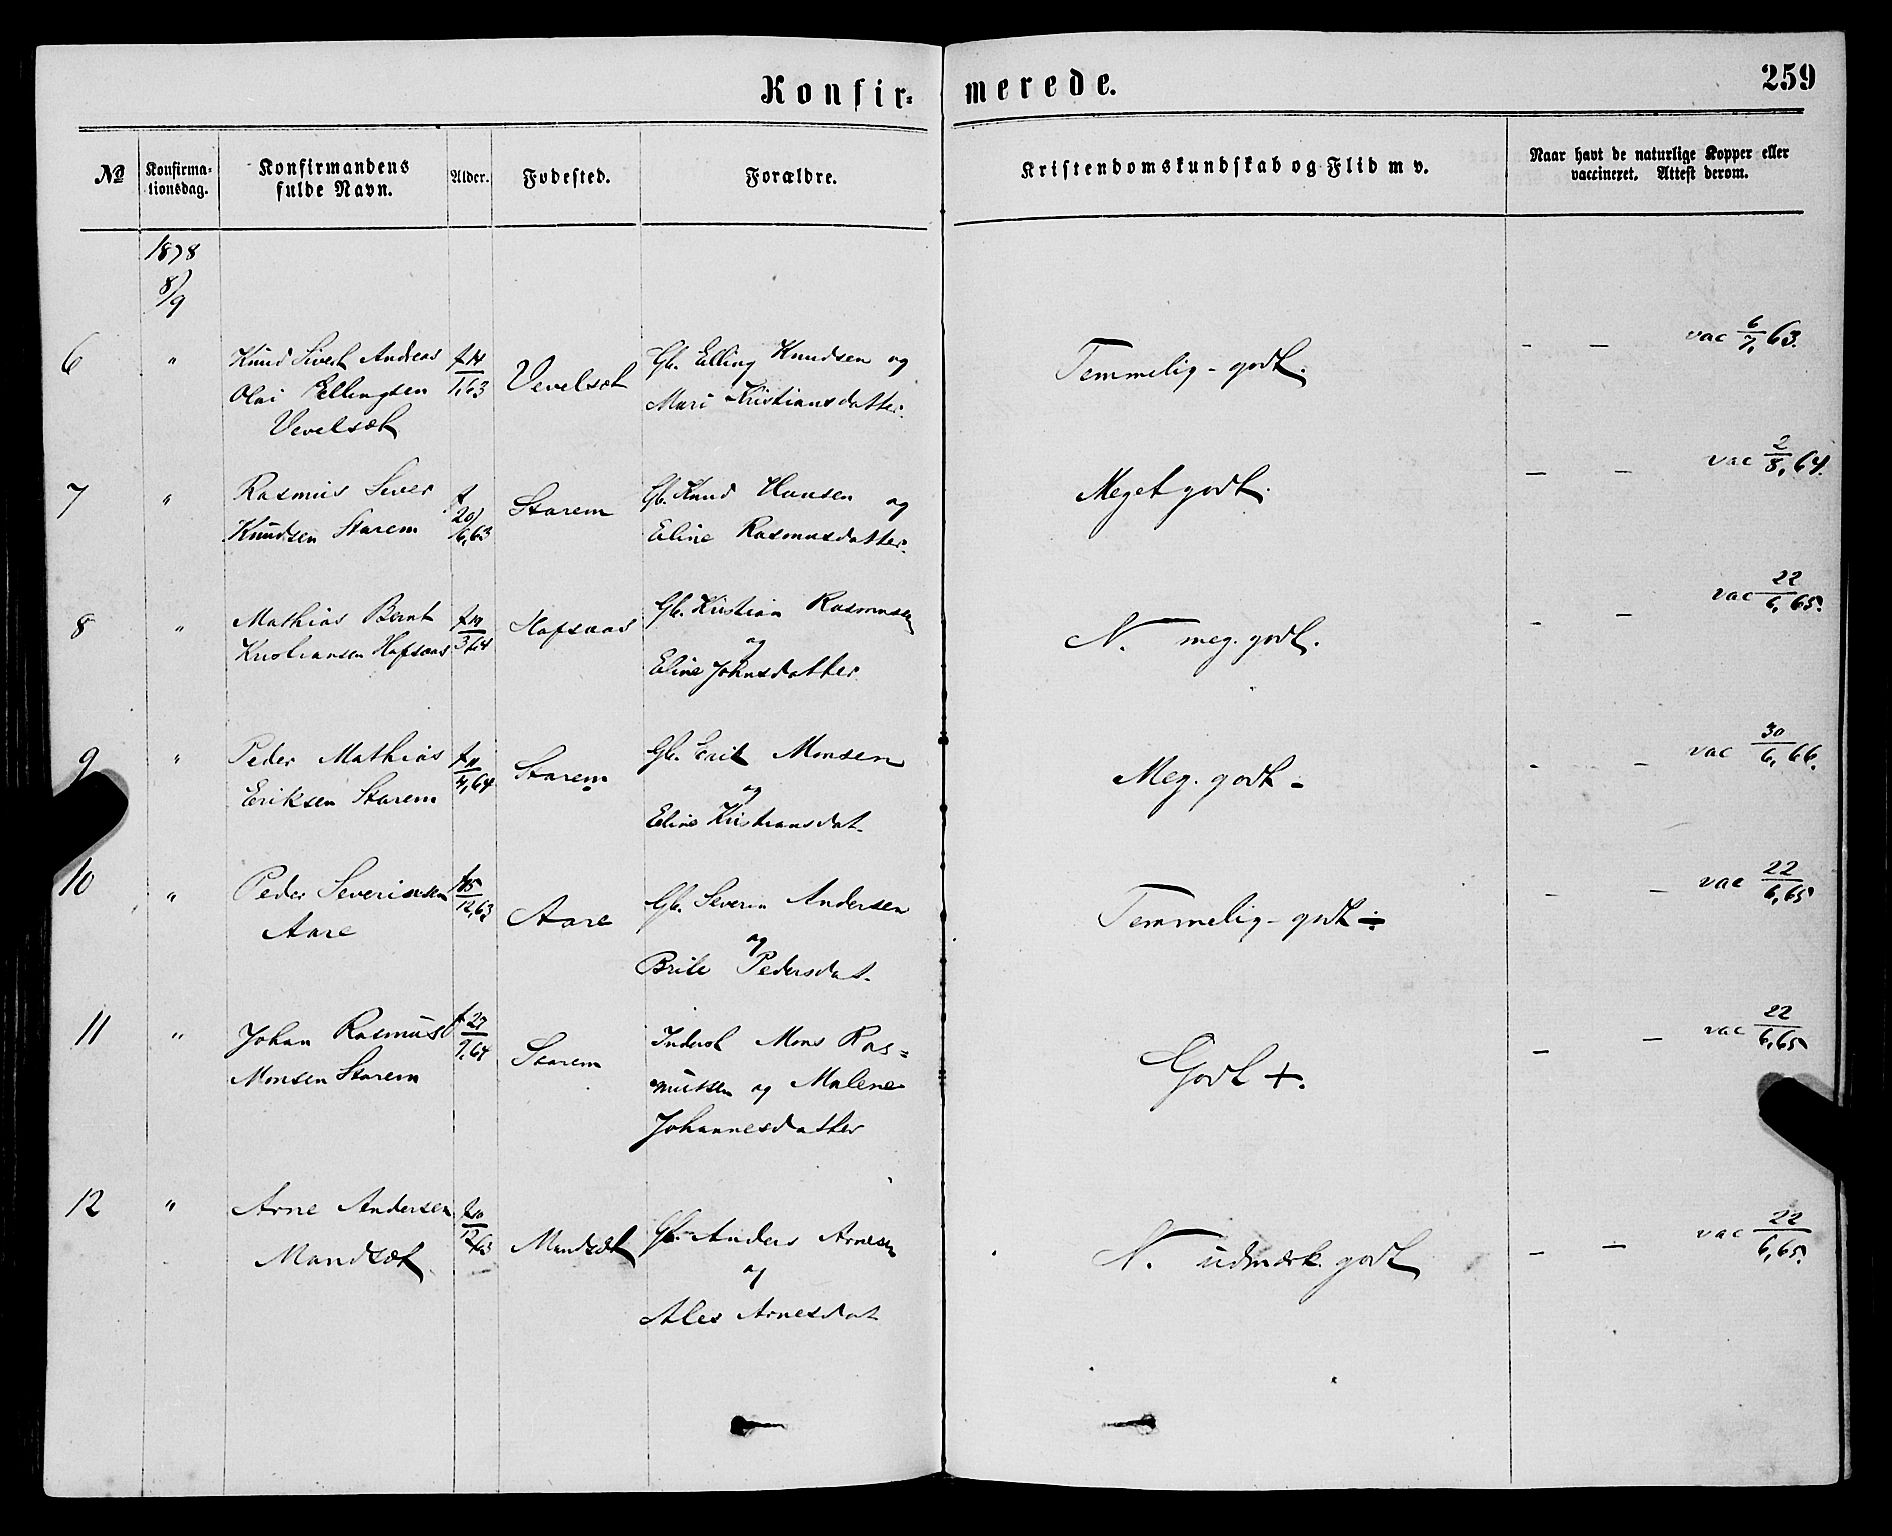 Konfir= merede. 259
№ Konfirma-tionsdag. Konfirmandens fulde Navn. Alder. Fødested. Forældre. Kristendomskundskab og Flid m v. Naar havt de naturlige Kopper eller vaccineret. Attest derom.
1878
8/9
6 " Knud Sivert Andreas f 14 Vevelsæt Gb. Elling Knudsen og Temmelig-godt. — — vac 6/7,63.
Olai Ellingsen 1,63 Mari Kristiansdatter.
Vevelsæt
7 " Rasmus Sever f Starem Gb. Knud Hansen og Meget godt. — — vac 2/8,64.
Knudsen Starem 20/6,63 Eline Rasmusdatter.
8 " Mathias Bernt f 19 Hafsaas Gb. Kristian Rasmusen N. meg. godt. — — vac 22/6,65.
Kristiansen Hafsaas 3,64 og
Eline Johnsdatter
9 " Peder Mathias f 11 Starem Gb. Erik Monsen Meg. godt - — — vac 30/6,66.
Eriksen Starem 4,64 og
Eline Kristiansdat.
10 " Peder Severinsen f 15 Aare Gb. Severin Andersen Temmelig-godt ÷ — — vac 22/6,65
Aare 12,63 og
Brite Pedersdat.
11 " Johan Rasmus f 27 Starem Inderst Mons Ras= Godt +. — — vac 22/6,65
Monsen Starem 7,64 mussen og Malene
Johannesdatter
12 " Arne Andersen Mandsæt Gb. Anders Arnesen N. udmærk. godt — — vac 22/6,65.
Mandsæt 12,63 og
Ales Arnesdat